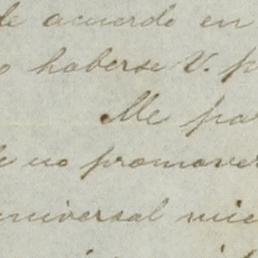 de acuerdo en
haberse V. p
Me par
de no promover
universal mie